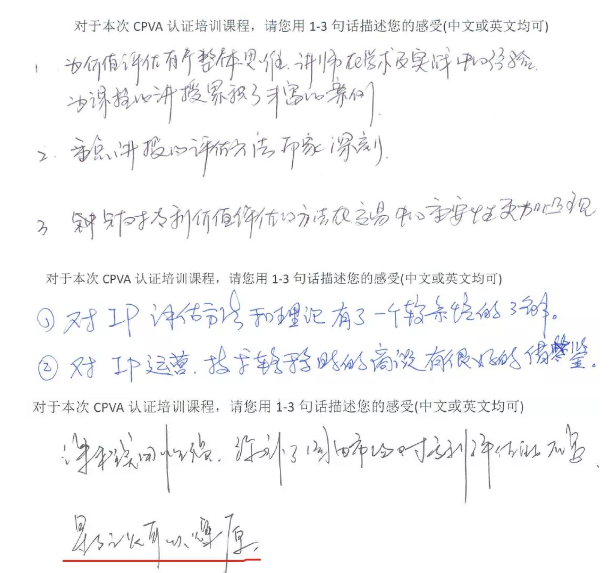 对于本次 CPVA 认证培训课程，请您用 1-3 句话描述您的感受(中文或英文均可)
1 为价值评估有个整体思维，讲师在学术及实践中的经验，
为课程的讲授累积了丰富的案例.
2. 重点讲授的评估方法印象深刻.
3 针对专利价值评估的方法在交易中的重要性更加凸现
对于本次 CPVA 认证培训课程，请您用 1-3 句话描述您的感受(中文或英文均可)
① 对 IP 评估方法和理论有了一个较系统的了解。
② 对 IP 运营、技术转移时的商谈有很好的借鉴。
对于本次 CPVA 认证培训课程，请您用 1-3 句话描述您的感受(中文或英文均可)
课程实用性强，了市场对专利评估的